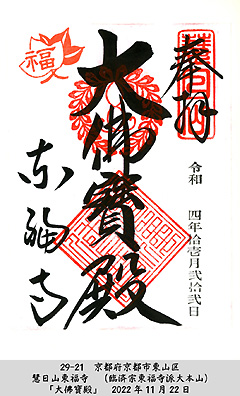 奉拝
令和 四年拾壱月弐拾弐日
大佛寳殿
東福寺
福
29-21 京都府京都市東山区
慧日山東福寺 (臨済宗東福寺派大本山)
「大佛寳殿」 2022年11月22日